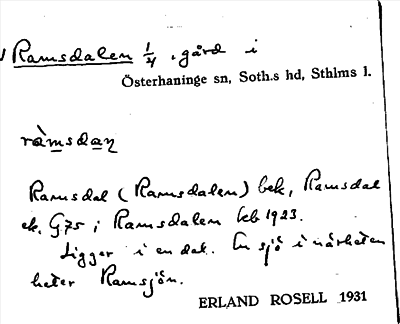 Ramsdalen 1/4, gård i
Österhaninge sn, Soth.s hd, Sthlms l.
ràmsdaṇ
Ramsdal (Ramsdalen) bek, Ramsdal
ek. G75; Ramsdalen kb 1923.
Ligger i en dal. En sjö i närheten
heter Ramsjön.
ERLAND ROSELL 1931